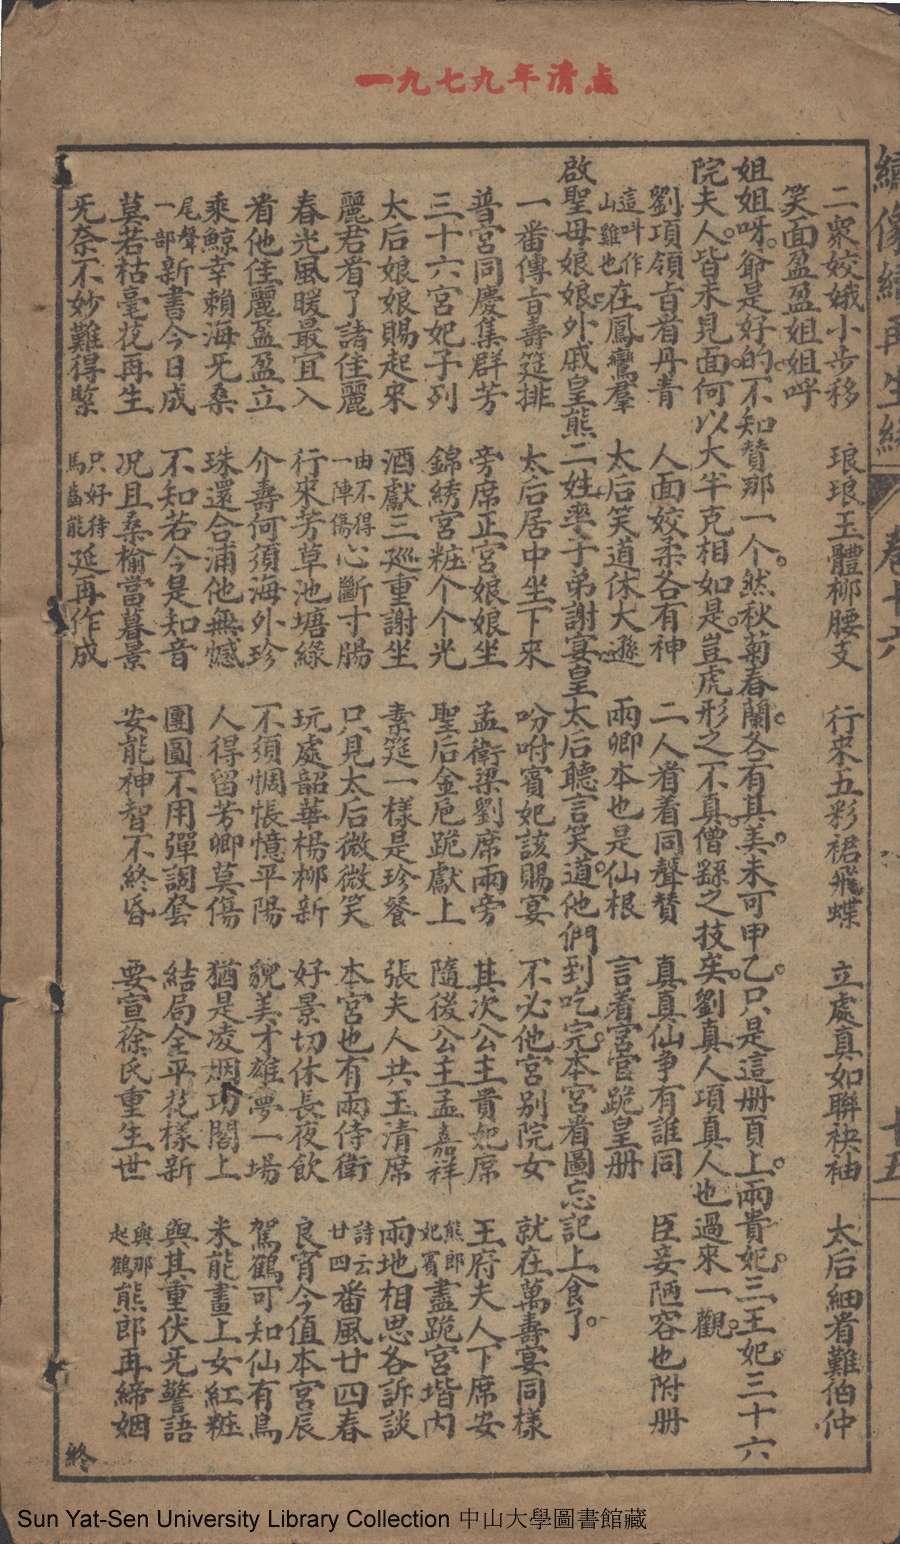 一九七九年清点
繡像續再生緣 卷十六 十五
二眾姣娥小步移 琅琅玉體柳腰支 行來五彩裙飛蝶 立處真如聯袂袖 太后細看難伯仲
笑面盈盈姐姐呼
姐姐呀。爺是好的。不知贊那一个。然秋菊春蘭。各有其美。未可甲乙。只是這册頁上。兩貴妃。三王妃。三十六
院夫人。皆未見面。何以大半克相如是。豈虎形之不真。僧繇之技矣。劉真人項真人也過來一觀。
劉項領旨看丹青 人面姣柔各有神 二人看着同聲贊 真真仙争有誰同 臣妾陋容也附册
這叫作山雞也在鳳鸞羣 太后笑道休大遜 兩卿本也是仙根 言着宮官跪皇册
啟聖母娘娘。外戚皇熊二姓率子弟謝宴。皇太后聽言笑道。他們到吃完。本宮看圖忘記上食了。
一番傳言壽筵排 太后居中坐下來 吩咐賓妃該賜宴 不必他宮別院女 就在萬壽宴同樣
普宮同慶集群芳 旁席正宮娘娘坐 孟衛梁劉席兩旁 其次公主貴妃席 王府夫人下席安
三十六宮妃子列 錦綉宮粧个个光 聖后金卮跪獻上 隨後公主孟嘉祥 熊郎妃賓盡跪宮堦內
太后娘娘賜起來 酒獻三廵重謝坐 素筵一樣是珍餐 張夫人共玉清席 兩地相思各訴談
麗君看了諸佳麗 由不得一陣傷心斷寸腸 只見太后微微笑 本宮也有兩侍衛 詩云廿四番風廿四春
春光風暖最宜入 行來芳草池塘綠 玩處韶華楊柳新 好景切休長夜飲 良宵今值本宮辰
看他佳麗盈盈立 介壽何須海外珍 不須惆悵憶平陽 貌美才雄夢一場 駕鶴可知仙有鳥
乘鯨幸賴海旡桑 珠還合浦他無憾 人得留芳卿莫傷 猶是凌烟功閣上 未能畫上女紅粧
尾聲一部新書今日成 不知若今是知音 團圓不用彈調套 結局全平花樣新 與其重伏旡警語
莫若枯毫花再生 况且桑榆當暮景 安能神智不終昏 要宣徐氏重生世 與那起鶴熊郎再締姻
旡奈不妙難得緊 只好待馬齒能延再作成
終
Sun Yat-Sen University Library Collection 中山大學圖書館藏